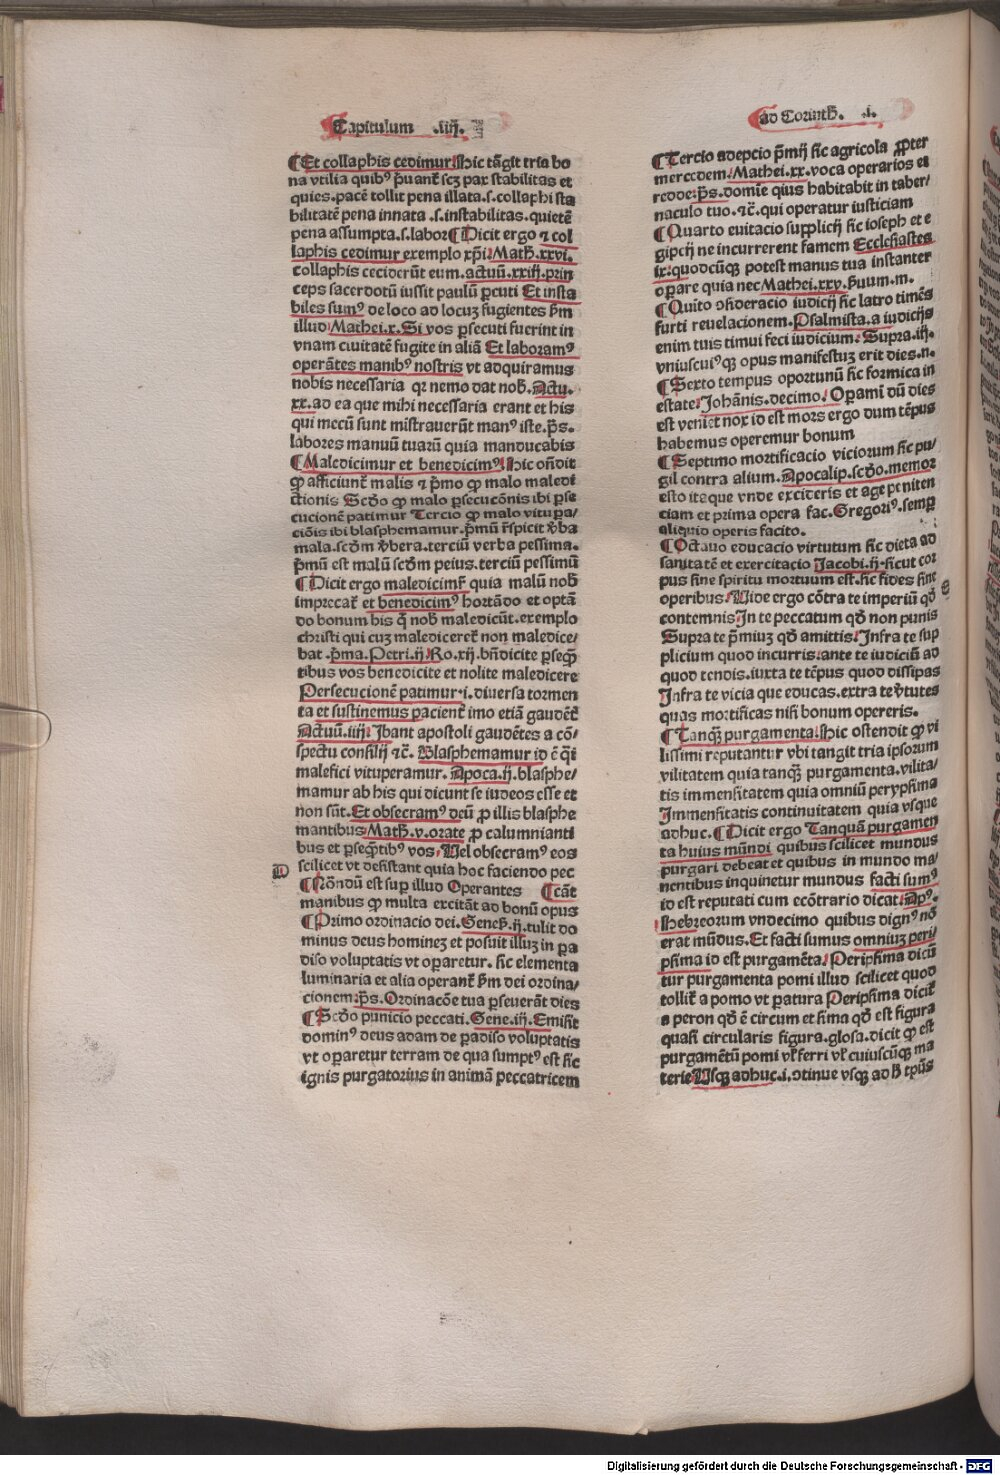 Capitulum .iiij.
ad Corinth̄. .i.
¶Et collaphis cedimur Hic tāgit tria bo
na vtilia quibꝰ p̄uant̄ scꝫ pax stabilitas et
quies. pacē tollit pena illata.s.collaphi sta
bilitatē pena innata .s.instabilitas.quietē
pena assumpta.s.labor ¶Dicit ergo ⁊ col
laphis cedimur exemplo xp̄i. Math̄.xxvi.
collaphis ceciderūt eum.actuū.xxiij.prin
ceps sacerdotū iussit paulū ꝑcuti Et insta
biles sumꝰ de loco ad locuꝫ fugientes ꝓm
illud Mathei.x. Si vos ꝑsecuti fuerint in
vnam ciuitatē fugite in aliā Et laboramꝰ
operātes manibꝰ nostris vt adquiramus
nobis necessaria qꝛ nemo dat nob̄. Actu.
xx. ad ea que mihi necessaria erant et his
qui mecū sunt mīstrauerūt manꝰ iste.p̄s.
labores manuū tuarū quia manducabis
¶Maledicimur et benedicimꝰ. Hic on̄dit
ꝙ afficiunt̄ malis ⁊ p̄mo ꝙ malo maledi
ctionis Scd̄o ꝙ malo ꝑsecucōnis ibi ꝑse
cucionē patimur Tercio ꝙ malo vitupꝑa/
ciōis ibi blasphemamur.p̄mū r̄spicit v̄ba
mala.scd̄m v̄bera.terciū verba pessima.
p̄mū est malū scd̄m peius.terciū pessimū
¶Dicit ergo maledicimr̄ quia malū nob̄
imprecat̄ et benedicimꝰ hortādo et optā
do bonum his q̄ nob̄ maledicūt.exemplo
christi qui cuꝫ malediceret̄ non maledice/
bat .p̄ma.Petri.ij. Ro.xij. bn̄dicite ꝑseq̄
tibus vos benedicite et nolite maledicere
Persecucionē patimur.i.diuersa tormen
ta et sustinemus pacient̄ imo etiā gaudēt̄
Actuū.iiij. Ibant apostoli gaudētes a cō/
spectu consilij ⁊c̄. Blasphemamur id ē q̄i
malefici vituperamur. Apoca.ij. blasphe/
mamur ab his qui dicunt se iudeos esse et
non sūt. Et obsecramꝰ deū ꝓ illis blasphe
mantibus Math̄.v.orate ꝓ calumnianti
bus et ꝑseq̄tibꝰ vos. Vel obsecramꝰ eos
scilicet vt desistant quia hoc faciendo pec
D
¶Nōndū est suꝑ illud Operantes ¶cāt
manibus ꝙ multa excitāt ad bonū opus
¶Primo ordinacio dei. Genes̄.ij. tulit do
minus deus hominez et posuit illuꝫ in ꝑa
diso voluptatis vt oꝑaretur. sic elementa
luminaria et alia operant̄ ꝓm dei ordina/
cionem.p̄s. Ordinacōe tua ꝑseuerāt dies
¶Scd̄o punicio peccati. Gene.iij. Emisit
dominꝰ deus adam de paradiso voluptatis
vt oꝑaretur terram de qua sumptꝰ est sic
ignis purgatorius in animā peccatricem
¶Tercio adepcio p̄mij sic agricola ꝓpter
mercedem. Mathei.xx. voca operarios et
redde.p̄s. domīe quis habitabit in taber/
naculo tuo.⁊c̄.qui operatur iusticiam
¶Quarto euitacio supplicij sic ioseph et e
gipcij ne incurrerent famem Ecclesiastes
ix. quodcūqꝫ potest manus tua instanter
oꝑare quia nec Mathei.xxv. p̄uum.m.
¶Quīto ꝯsideracio iudicij sic latro timēs
furti reuelacionem. Psalmista. a iudicijs
enim tuis timui feci iudicium. Supra.iij.
vniuscuiꝰqꝫ opus manifestuꝫ erit dies.n.
¶Sexto tempus oportunū sic formica in
estate. Johānis.decimo. Oꝑami dū dies
est veniet nox id est mors ergo dum tēpus
habemus operemur bonum
¶Septimo mortificacio viciorum sic pu/
gil contra alium. Apocalip.scd̄o.memor
esto itaque vnde excideris et age peniten
ciam et prima opera fac. Gregoriꝰ.semꝑ
aliquid operis facito.
¶Octauo educacio virtutum sic dieta ad
sanitatē et exercitacio Jacobi.ij. sicut cor
pus sine spiritu mortuum est.sic fides sine
operibus. Vide ergo cōtra te imperiū qd̄
contemnis In te peccatum qd̄ non punis
Supra te p̄miuꝫ qd̄ amittis. Infra te sup
plicium quod incurris. ante te iudiciū ad
quod tendis.iuxta te tēpus quod dissipas
Infra te vicia que educas.extra te v̄tutes
quas mortificas nisi bonum opereris.
¶Tanqꝫ purgamenta. Hic ostendit ꝙ vi
lissimi reputantur vbi tangit tria ipsorum
vilitatem quia tanqꝫ purgamenta.vilita/
tis immensitatem quia omniū peripsima
Immensitatis continuitatem quia vsque
adhuc. ¶Dicit ergo Tanquā purgamen
ta huius mūndi quibus scilicet mundus
purgari debeat et quibus in mundo ma/
nentibus inquinetur mundus facti sumꝰ
id est reputati cum ecōtrario dicat Apꝰ.
Hebreorum vndecimo quibus dignꝰ nō
erat mūdus. Et facti sumus omniuꝫ peri/
psima id est purgamēta. Peripsima dicū
tur purgamenta pomi illud scilicet quod
tollit̄ a pomo vt ꝑatura Peripsima dicit̄
a peron qd̄ ē circum et sima qd̄ est figura
quasi circularis figura.glosa.dicit ꝙ est
purgamētū pomi vl̄ ferri vl̄ cuiuscūqꝫ ma
terie Vsqꝫ adhuc.i.ꝯtinue vsqꝫ ad h̄ tꝑus
Digitalisierung gefördert durch die Deutsche Forschungsgemeinschaft - DFG